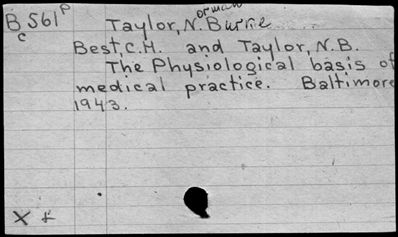 B 561 p
c
Taylor, N. Burke
orman
Best, C.H. and Taylor, N.B.
The Physiological basis of
medical practice. Baltimore
1943.
X +